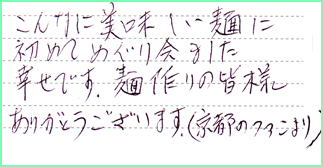 こんなに美味しい麺に
初めてめぐり会ました
幸せです。麺作りの皆様
ありがとうございます。(京都のファンより)